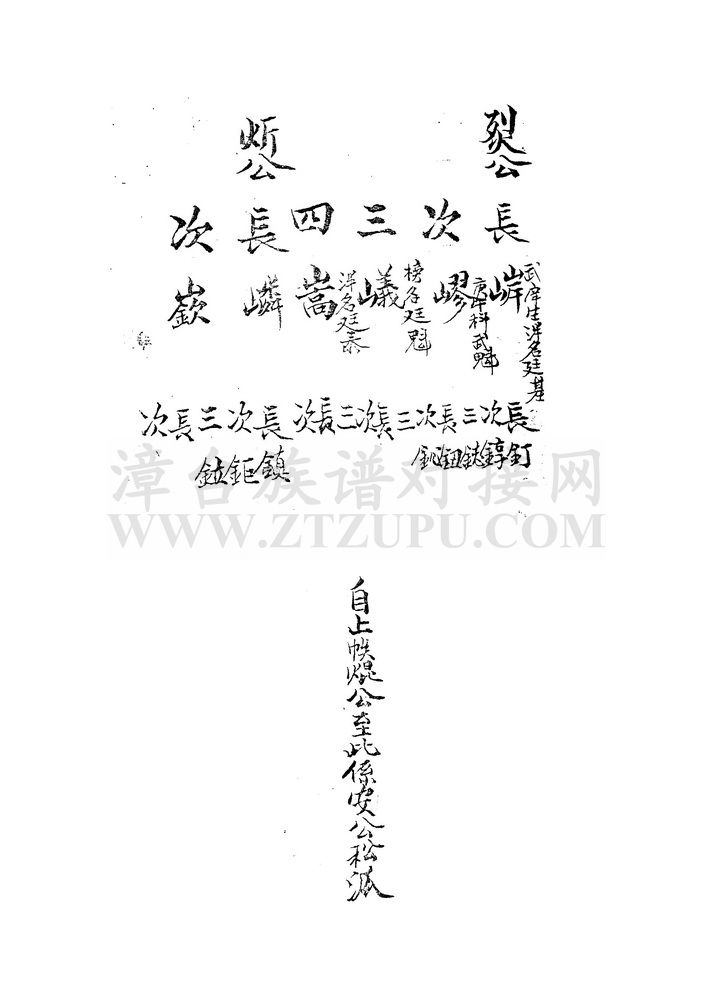 烈公
炘公
長 次 三 四 長 次
㠺 嵺 㠖 嵩 嶙 嶔
武庠生洋名廷基
庚午科武魁
榜名廷魁
洋名廷泰
長 次 三 次 三 長 次 三 長 次 長 次 三 長 次
釘 錞 鈕 鎮 鉅
漳台族谱对接网
WWW.ZTZUPU.COM
自上帙焜公至此係安公松派